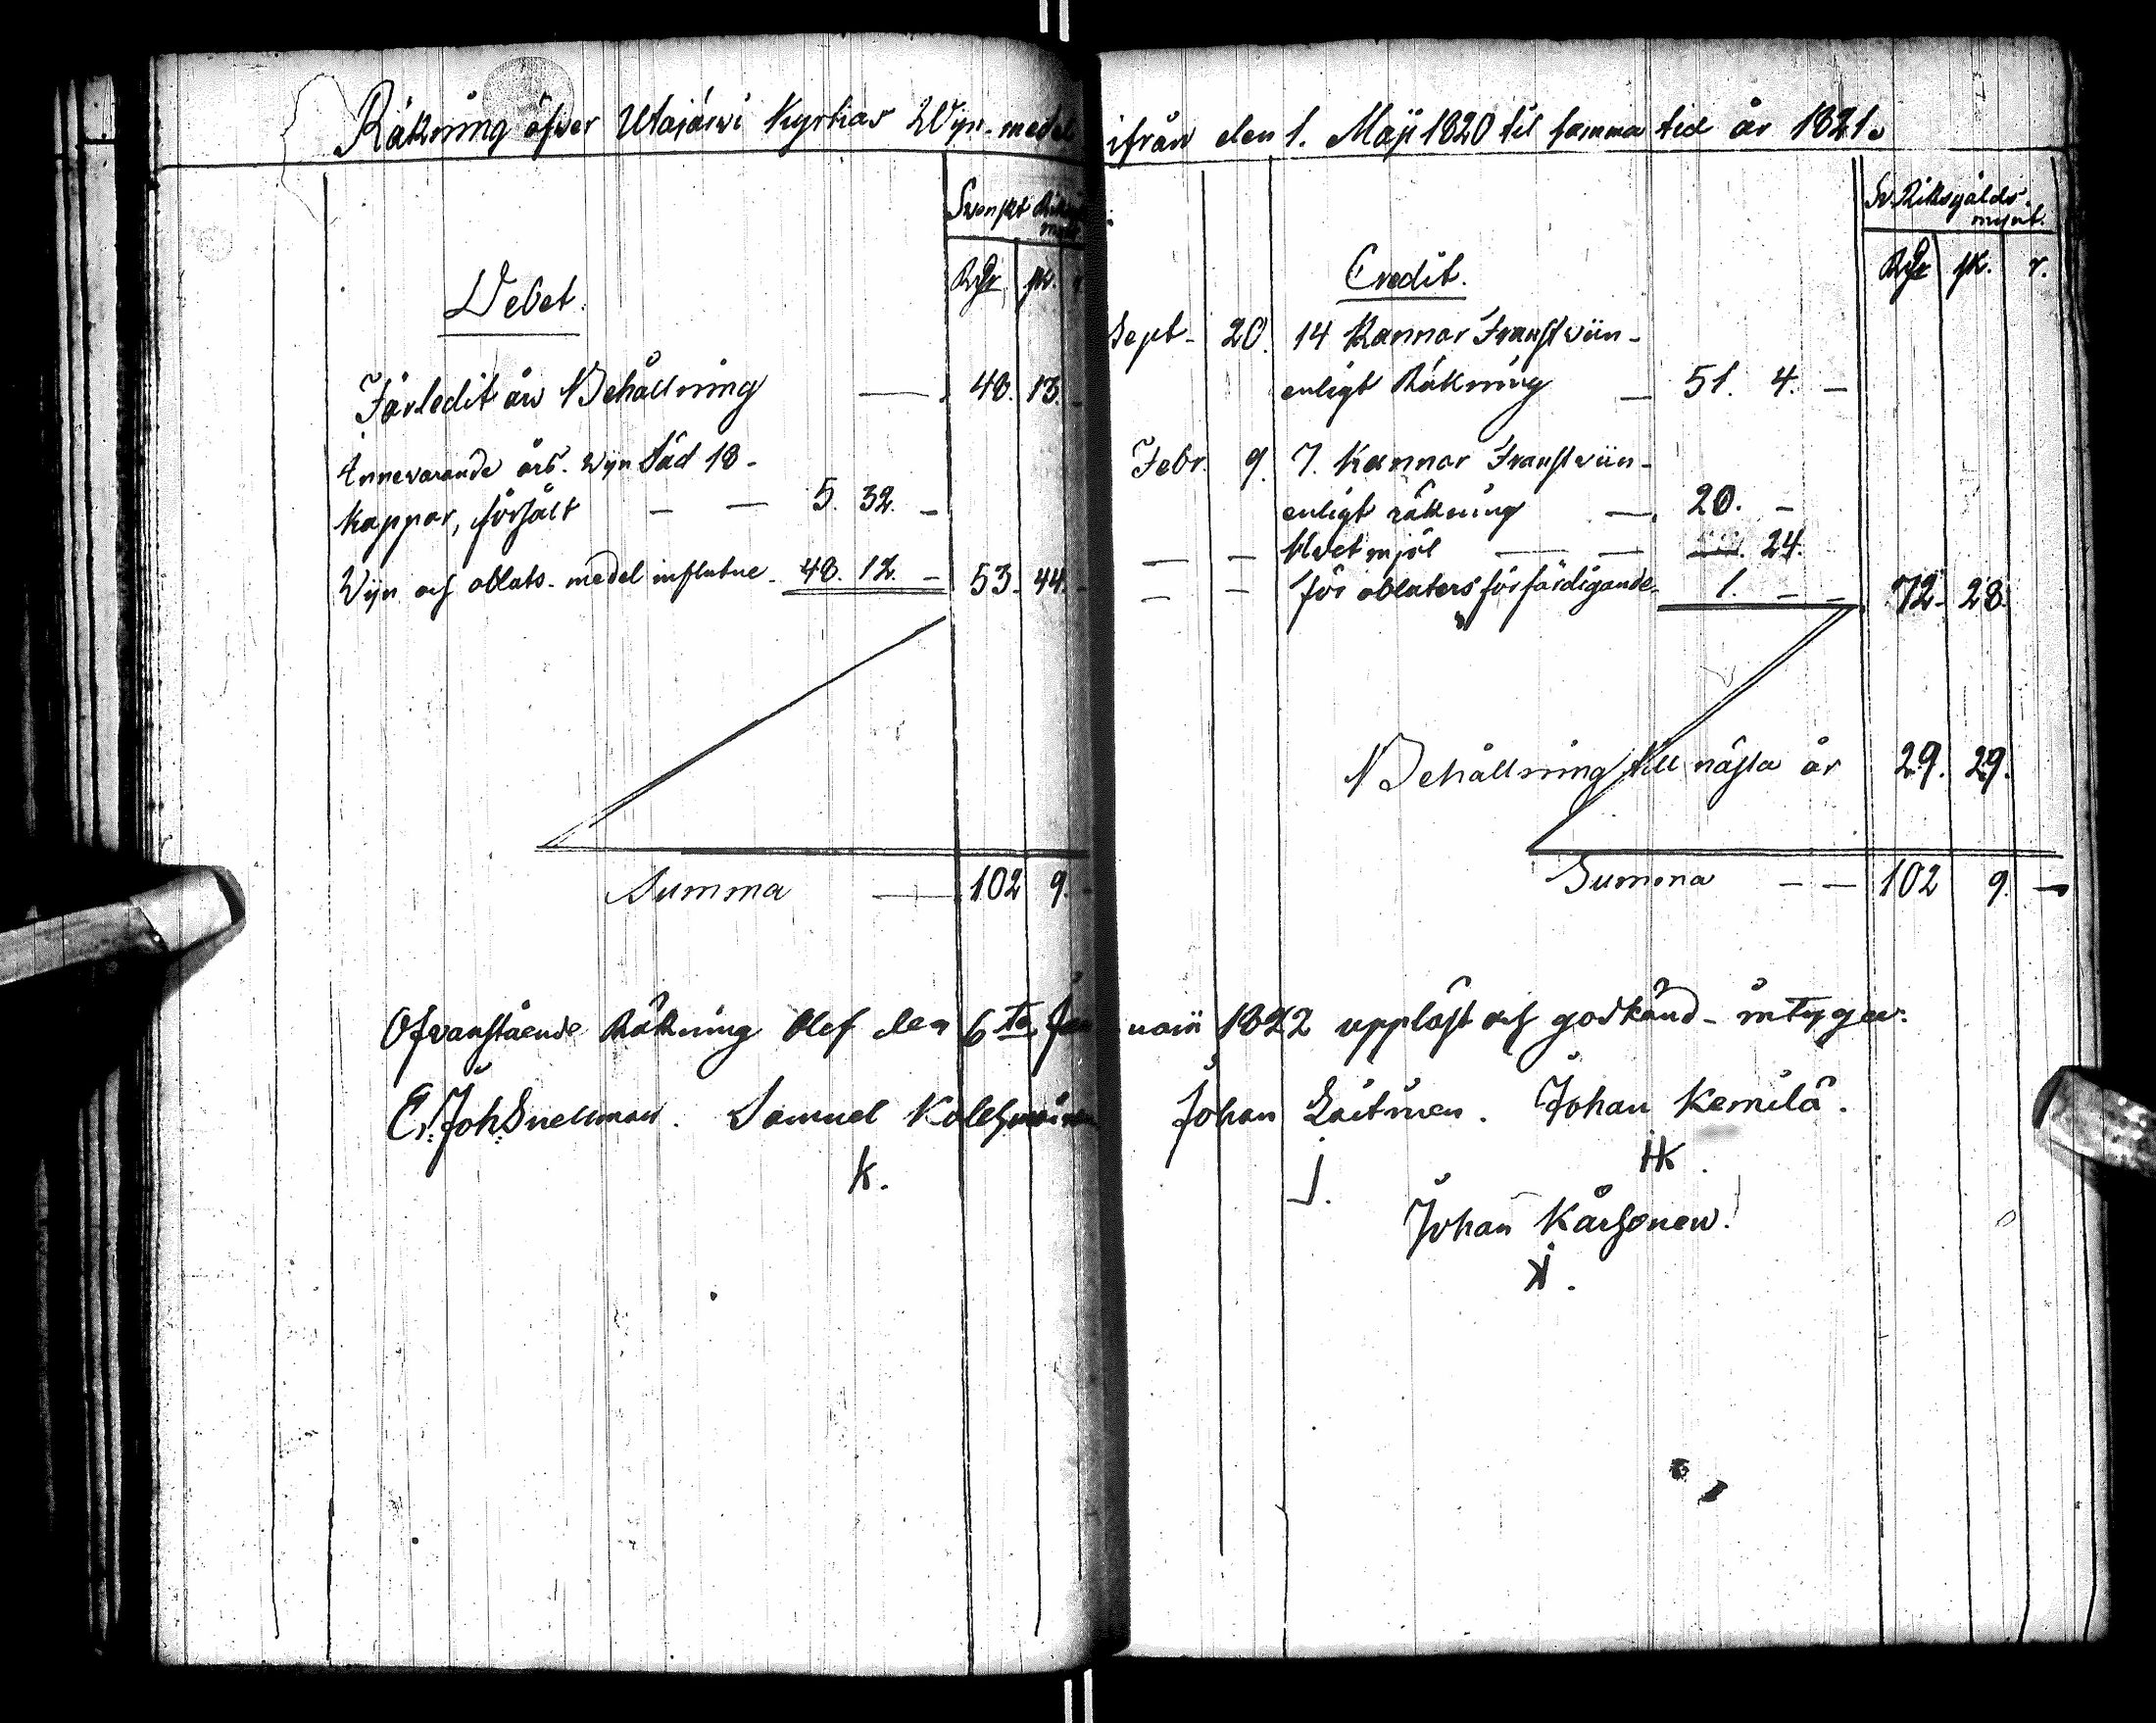 Räkning öfwer Utajärwi Kyrkas Wijn-medel ifrån den 1. Maji 1820 til samma tid år 1821.
Swenskt
Debet.
RDr sk.
Förledit års Behållning — 48. 13. -
Innevarande års Wijn Säd 18-
kappar, försålt — — 5. 32. -
Wijn och oblats-medel influtne. 48. 12. - 53. 44. -
Summa — 102 9.
Sv. Riksgälds
mynt.
Credit.
RDr sk. r.
Sept- 20. 14 Kannor Franskt viin-
enligt Räkning — 51. 4. —
Febr. 9. 7. Kannor Franskt viin-
enligt räkning — 20. -
— — Hvetmjöl — — 24.
— — för oblaters förfärdigande. 1. - - 72. 28.
Behållning till nästa år 29. 29.
Summa — — 102 9. —
Ofvanstående Räkning blef den 6te Januarii 1822 uppläst och godkänd - intygar.
Er: Joh: Snellman. Samuel Kolehmainen Johan Laitinen. Johan Kemilä.
K. J. HK.
Johan Karhonen.